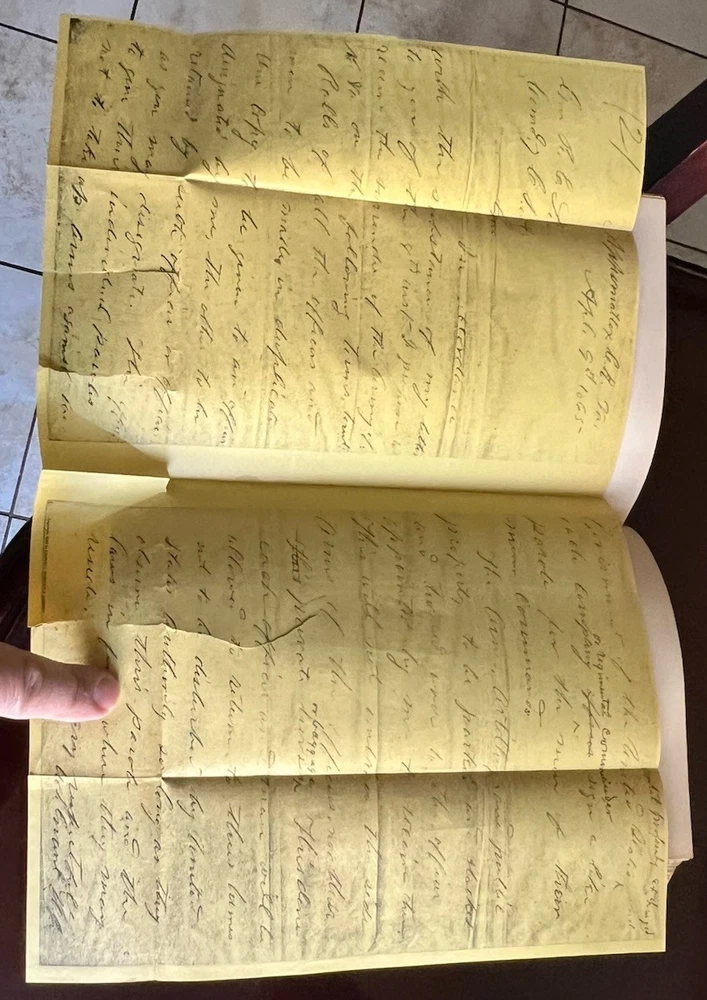 (2)
Appomattox C.H. Va.
Apl. 9th 1865
Gen. R. E. Lee
Comdg C.S.A.
Gen.
In accordance
with the substance of my letter
to you of the 8th inst. I propose to
receive the surrender of the Army of
N. Va. on the following terms, towit:
Rolls of all the officers and
men to be made in duplicate
One copy to be given to an officer
designated by me, the other to be
retained by such officer or officers
as you may designate. The officers
to give their individual paroles
not to take up arms against the
until properly exchanged
Government of the United States
or regimental commander
each company officer sign a like
parole for the men of their
commands
The Arms, Artillery and public
property to be parked and stacked
and turned over to the officer
appointed by me to receive them
This will not embrace the side
Arms of the officers, nor their
private horses or baggage. This done
each officer and man will be
allowed to return to their homes
not to be disturbed by United
States Authority so long as they
observe their parole and the
laws in where they may
reside.
Very respectfully
U.S. Grant Lt